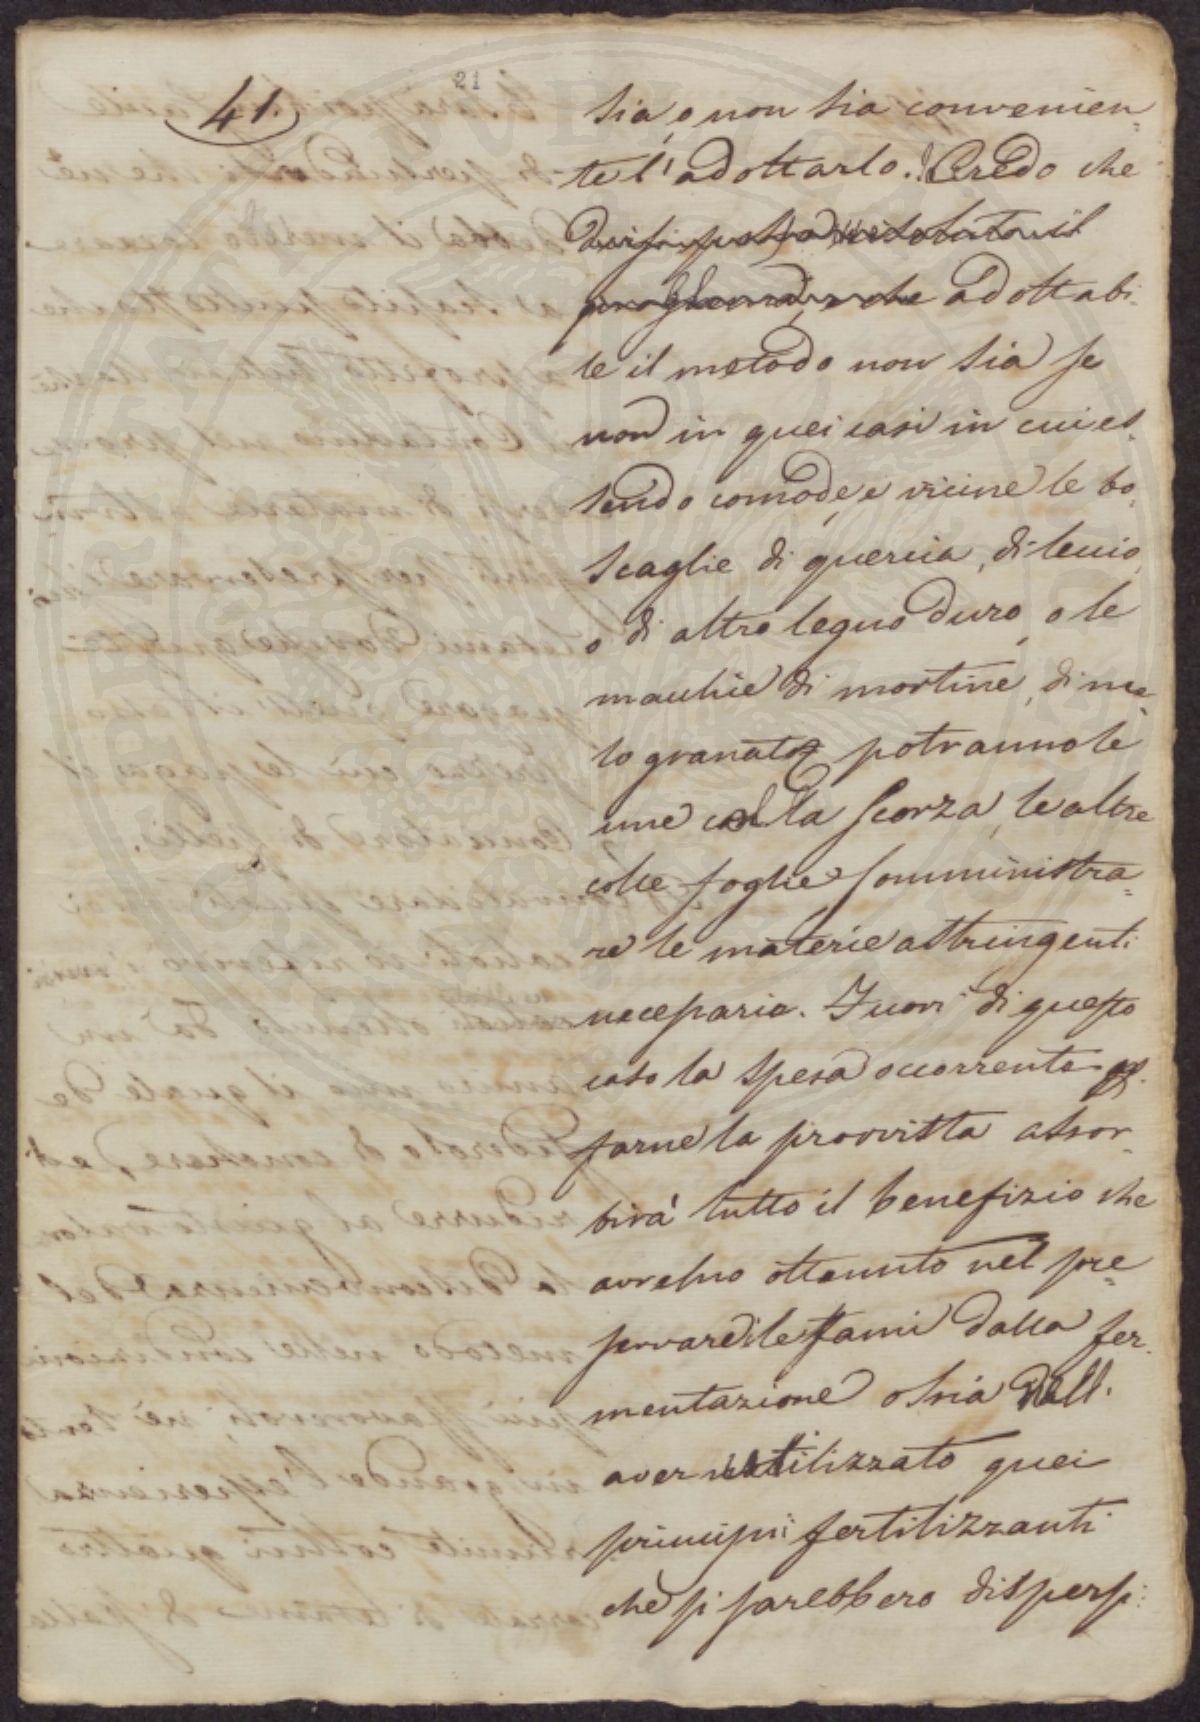 41.
21
sia, o non sia convenien=
te l'adottarlo. Credo che
adottabi-
le il metodo non sia se
non in quei casi in cui es-
sendo comode, e vicine le bo-
scaglie di quercia, di leccio,
o di altro legno duro, o le
macchie di mortine, di me-
lo granato potranno le
une colla scorza, le altre
colle foglie somministra=
re le materie astringenti
necessarie. Fuori di questo
caso la spesa occorrente p.
farne la provvista assor-
birà tutto il benefizio che
avremo ottenuto nel pre=
servare i letami dalla fer-
mentazione ossia dall'
aver utilizzato quei
principii fertilizzanti
che si sarebbero dispersi.